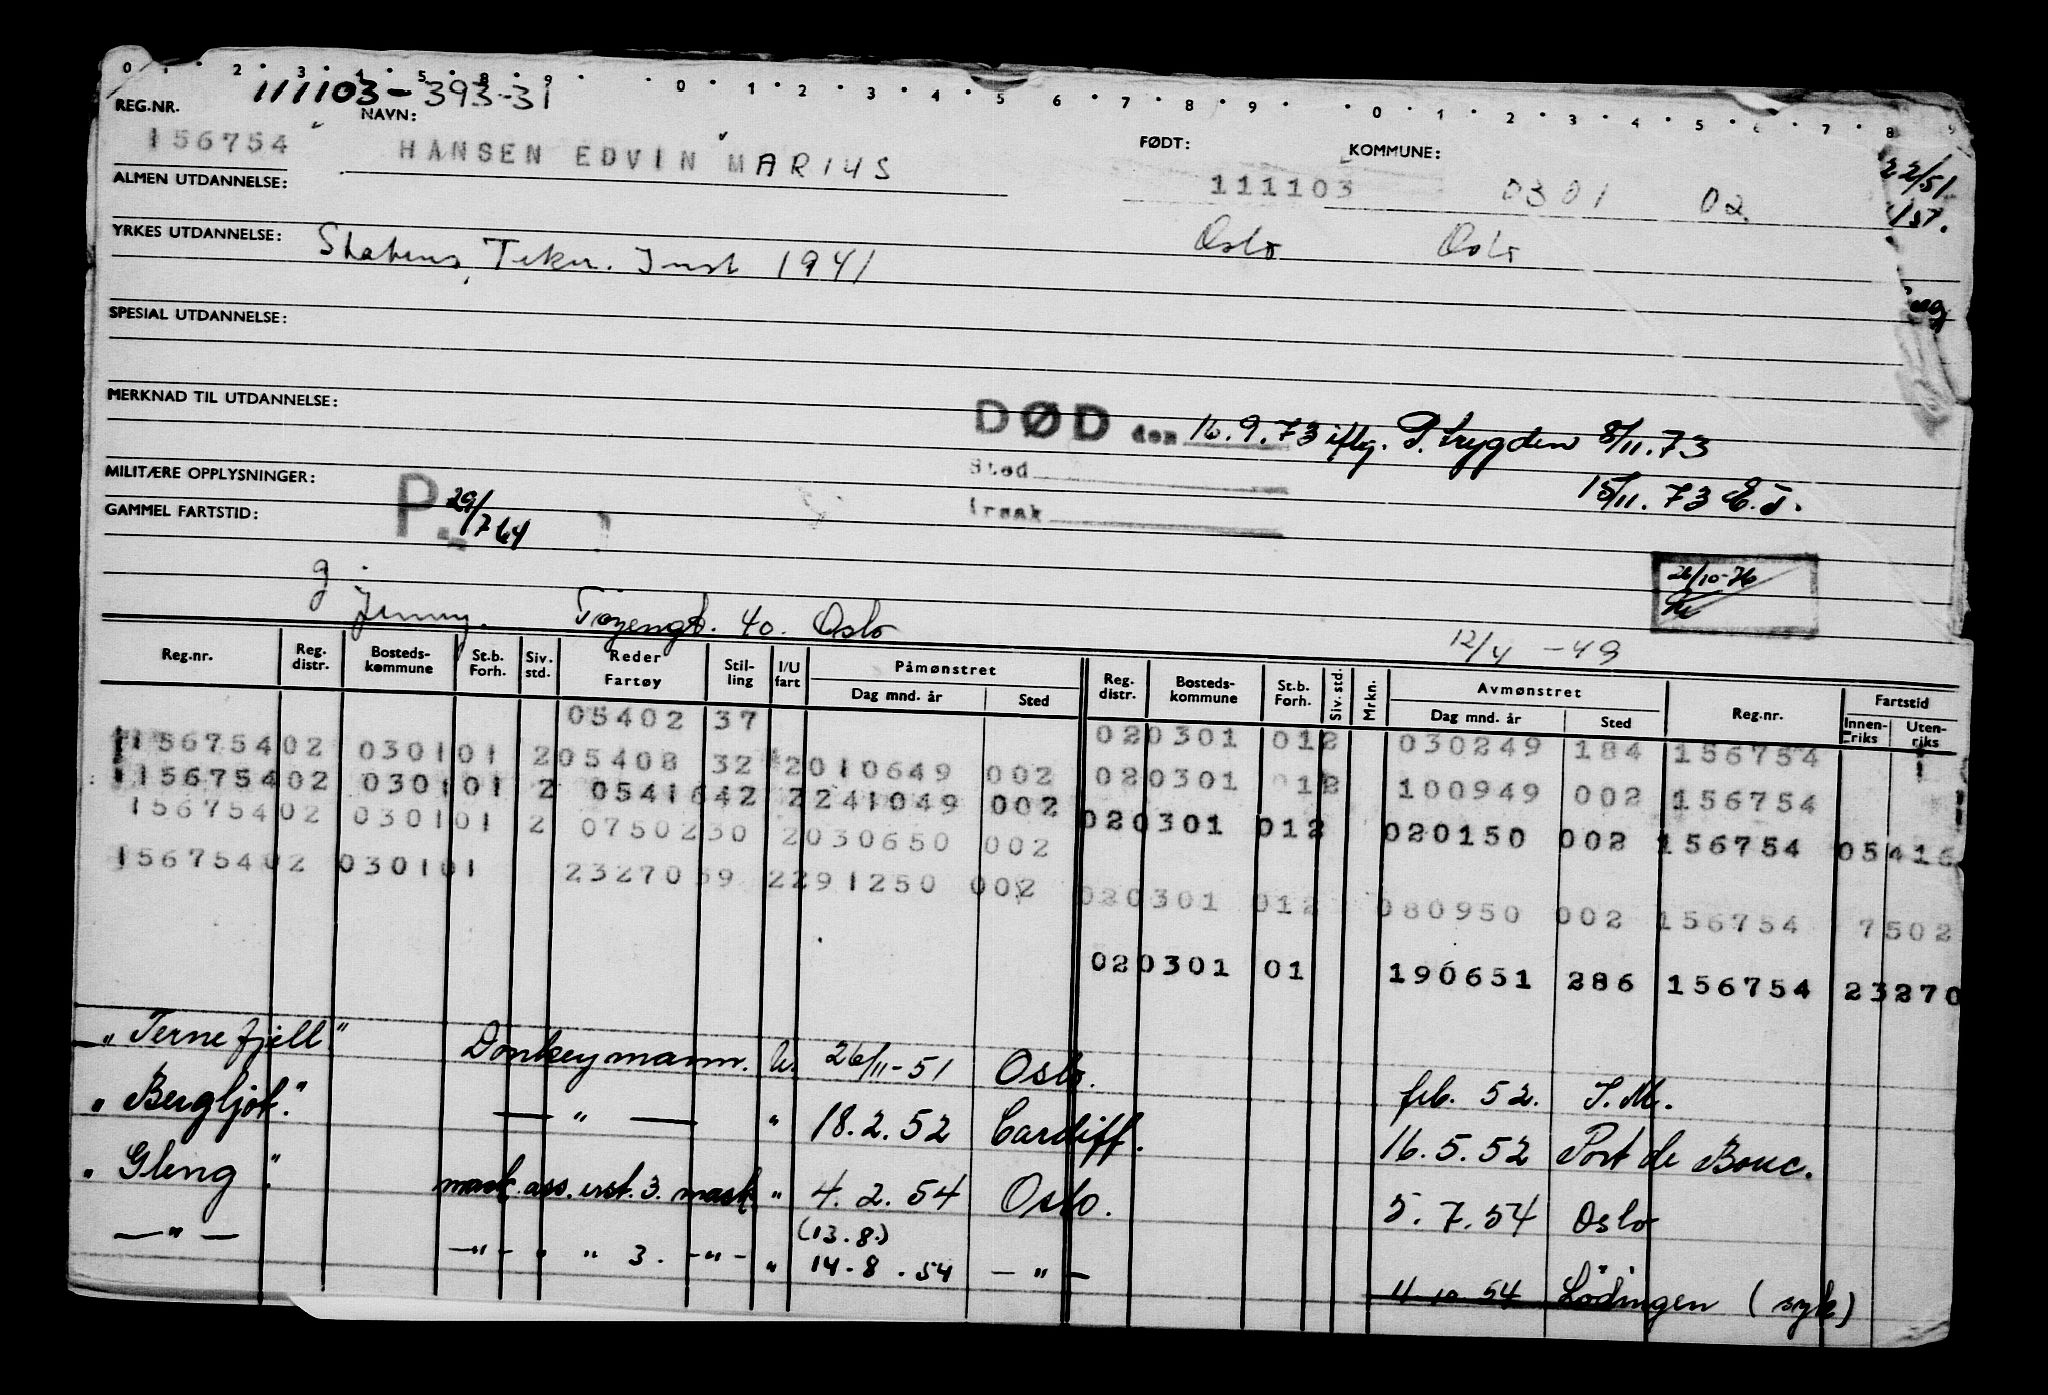 0 1 2 3 4 5 8 9 0 1 2 3 4 5 6 7 8 9 0 1 2 3 4 5 6 7 8 9
111103-393-31
REG.NR. NAVN: FØDT: KOMMUNE:
156754 HANSEN EDVIN MARIUS 111103 0301 02 22/51
ALMEN UTDANNELSE: 1st.
YRKES UTDANNELSE: Statens Tekn. Inst 1941 Oslo Oslo
SPESIAL UTDANNELSE:
MERKNAD TIL UTDANNELSE:
DØD den 16.9.73 iflg. P.trygden 8/11.73
MILITÆRE OPPLYSNINGER: Sted
15/11.73 E.J.
GAMMEL FARTSTID: P. 29/7 64 Årsak
26/10-76
g. Jenny. Tøyengt. 40. Oslo
12/4 -49
Reg.nr. Reg. distr. Bosteds-kommune St.b. Forh. Siv. std. Reder Fartøy Stil-ling I/U fart Påmønstret Dag mnd. år Sted Reg. distr. Bosteds-kommune St.b. Forh. Siv. std. Mrkn. Avmønstret Dag mnd. år Sted Reg.nr. Fartstid Innen-riks Uten-riks
05402 37 020301 012 030249 184 156754
156754 02 0301 01 2 05408 32 2 010649 002 020301 012 100949 002 156754
156754 02 0301 01 2 05416 42 2 241049 002 020301 012 020150 002 156754 05416
156754 02 0301 01 2 07502 30 2 030650 002 020301 012 080950 002 156754 7502
156754 02 0301 01 23270 59 2 291250 002 020301 01 190651 286 156754 23270
"Ternefjell" Donkeymann. U. 26/11-51 Oslo. feb. 52. I.M.
"Bergljot." — " — " 18.2.52 Cardiff. 16.5.52 Port de Bouc.
"Gleng". mask. ass. erst. 3. mask " 4.2.54 Oslo. 5.7.54 Oslo
(13.8.)
— " — — " - " " 3. - " - " 14.8.54 — " — 4.10.54 Lödingen (syk)